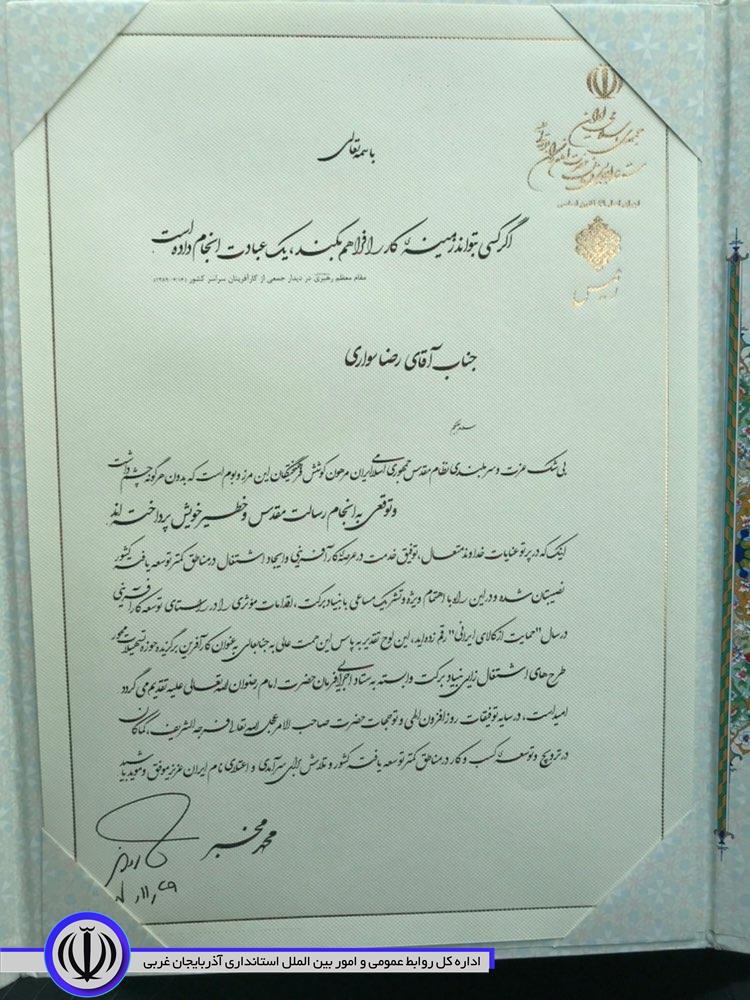 جمهوری اسلامی ایران
ستاد اجرایی فرمان حضرت امام
رئیس
باسمه تعالی
اگر کسی بتواند زمینهٔ کار را فراهم بکند، یک عبادت انجام داده است
مقام معظم رهبری در دیدار جمعی از کارآفرینان سراسر کشور
جناب آقای رضا سواری
بی شک عزت و سربلندی نظام مقدس جمهوری اسلامی ایران مرهون کوشش فرهیختگان این مرز و بوم است که بدون هرگونه چشم داشت
و توقعی به انجام رسالت مقدس و خطیر خویش پرداخته اند
اینک که در پرتو عنایات خداوند متعال، توفیق خدمت در عرصهٔ کارآفرینی و ایجاد اشتغال در مناطق کمتر توسعه یافتهٔ کشور
نصیبتان شده و در این راه با اهتمام ویژه و تشریک مساعی با بنیاد برکت، اقدامات مؤثری را در راستای توسعه کارآفرینی
در سال "حمایت از کالای ایرانی" رقم زده اید، این لوح تقدیر به پاس این همت عالی به جنابعالی به عنوان کارآفرین برگزیده حوزه تسهیلات محور
طرح های اشتغال زایی بنیاد برکت وابسته به ستاد اجرایی فرمان حضرت امام رضوان الله تعالی علیه تقدیم می گردد
امید است، در سایه توفیقات روزافزون الهی و توجهات حضرت صاحب الامر عجل الله تعالی فرجه الشریف، کماکان
در ترویج و توسعهٔ کسب و کار در مناطق کمتر توسعه یافتهٔ کشور و تلاش برای سرآمدی و اعتلای نام ایران عزیز موفق و موید باشید
محمد مخبر
اداره کل روابط عمومی و امور بین الملل استانداری آذربایجان غربی